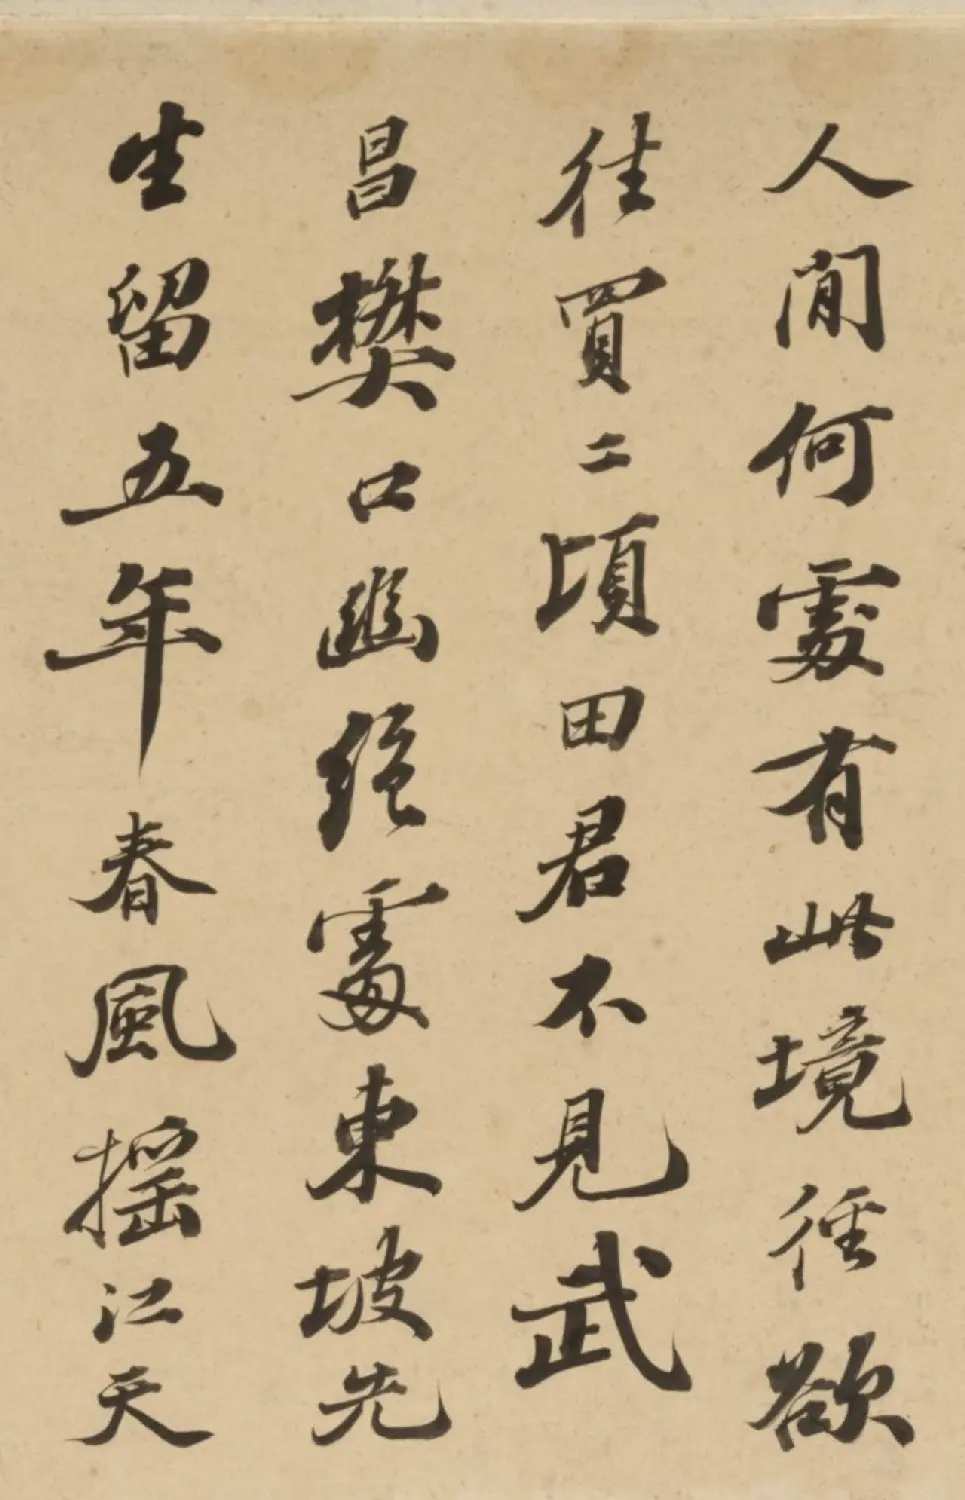 人間何處有此境徑欲
往買二頃田君不見武
昌樊口幽絕處東坡先
生留五年春風搖江天